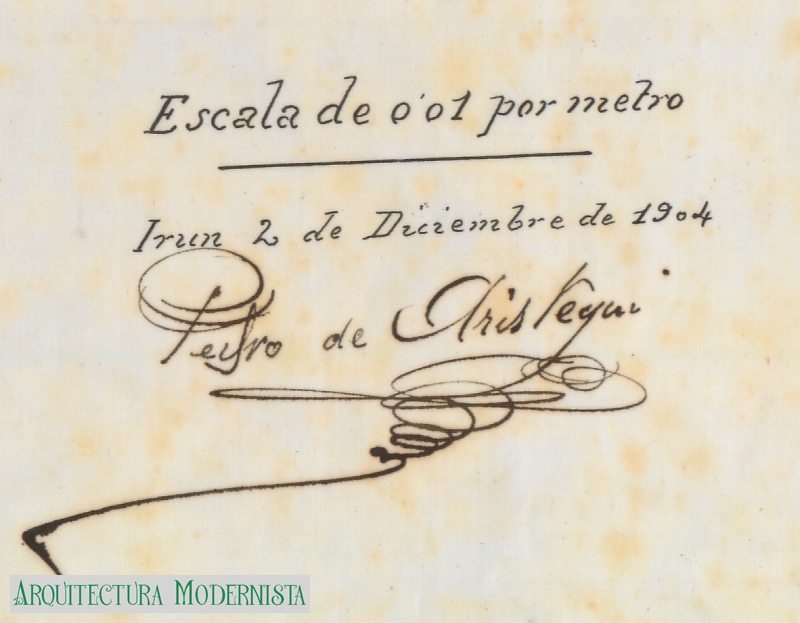 Escala de 0'01 por metro
Irun 2 de Diciembre de 1904
Pedro de Aristegui
ARQUITECTURA MODERNISTA